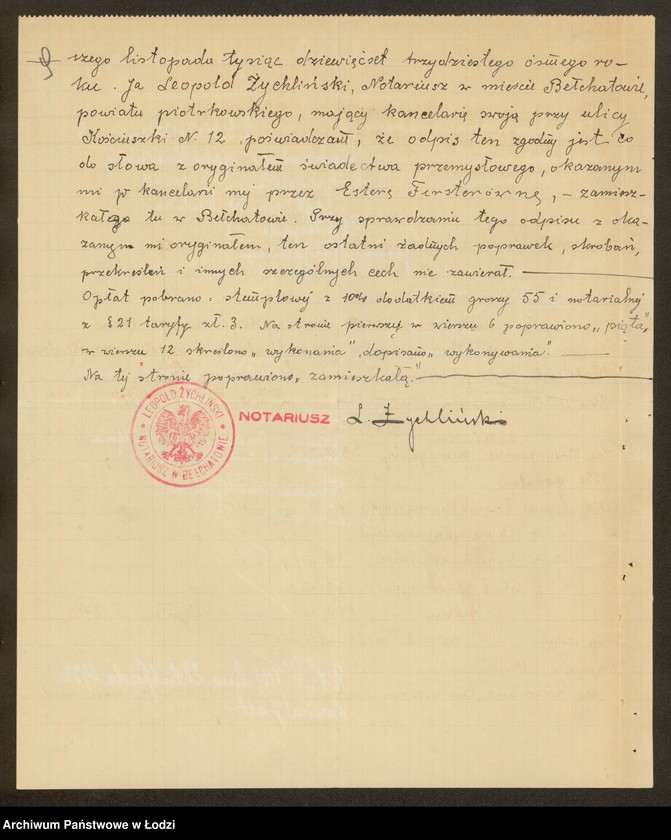 szego listopada tysiąc dziewięćset trzydziestego ósmego ro-
ku. Ja Leopold Żychliński, Notariusz w mieście Bełchatowie,
powiatu piotrkowskiego, mający kancelarię swoją przy ulicy
Kościuszki N. 12, poświadczam, że odpis ten zgodny jest co
do słowa z oryginałem świadectwa przemysłowego, okazanym
mi w kancelarii mej przez Esterę Fersterównę, – zamiesz-
kałą tu w Bełchatowie. Przy sprawdzaniu tego odpisu z oka-
zanym mi oryginałem, ten ostatni żadnych poprawek, skrobań,
przekreśleń i innych szczególnych cech nie zawierał.
Opłat pobrano: stemplowej z 10% dodatkiem groszy 55 i notarialnej
z § 21 taryfy zł. 3. Na stronie pierwszej w wierszu 6 poprawiono „piąta",
w wierszu 12 skreślono „wykonania", dopisano „wykonywania".
Na tej stronie poprawiono „zamieszkałą."
LEOPOLD ŻYCHLIŃSKI
NOTARIUSZ W BEŁCHATOWIE
NOTARIUSZ L. Żychliński
Archiwum Państwowe w Łodzi